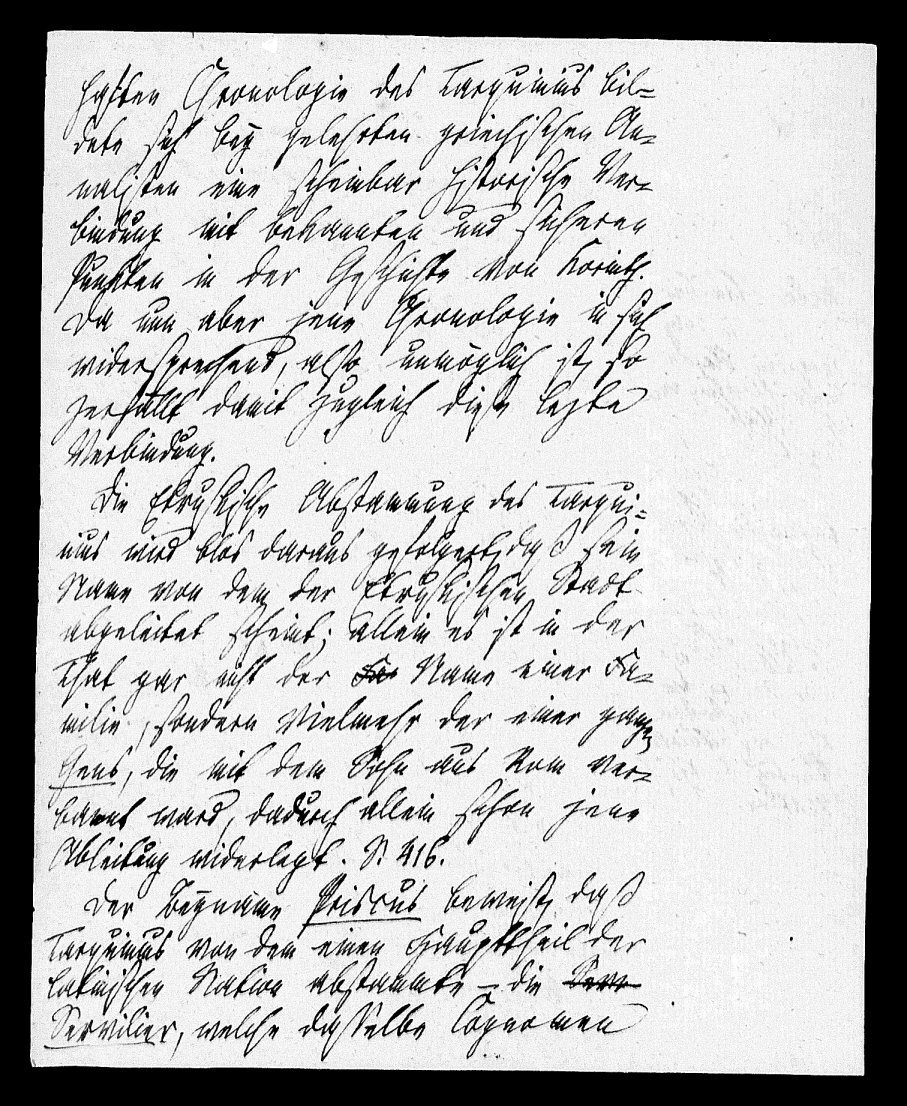 haften Chronologie des Tarquinius bil-
dete sich bey gelehrten griechischen An-
nalisten eine scheinbar historische Ver-
bindung mit bekannten und sicheren
Punkten in der Geschichte von Korinth.
Da nun aber jene Chronologie in sich
widersprechend, also unmöglich ist, so
zerfällt damit zugleich diese lezte
Verbindung.
Die Etruskische Abstammung des Tarqui-
nius wird blos daraus gefolgert, daß sein
Name von dem der Etruskischen Stadt
abgeleitet scheint; allein es ist in der
That gar nicht der Fa Name einer Fa-
milie, sondern vielmehr der einer ganzen
Gens, die mit dem Sohn aus Rom ver-
bannt ward, dadurch allein schon jene
Ableitung widerlegt. S. 416.
Der Beyname Priscus beweist, daß
Tarquinius von dem einen Haupttheil der
latinischen Nation abstammte – die Serv
Servilier, welche dasselbe Cognomen